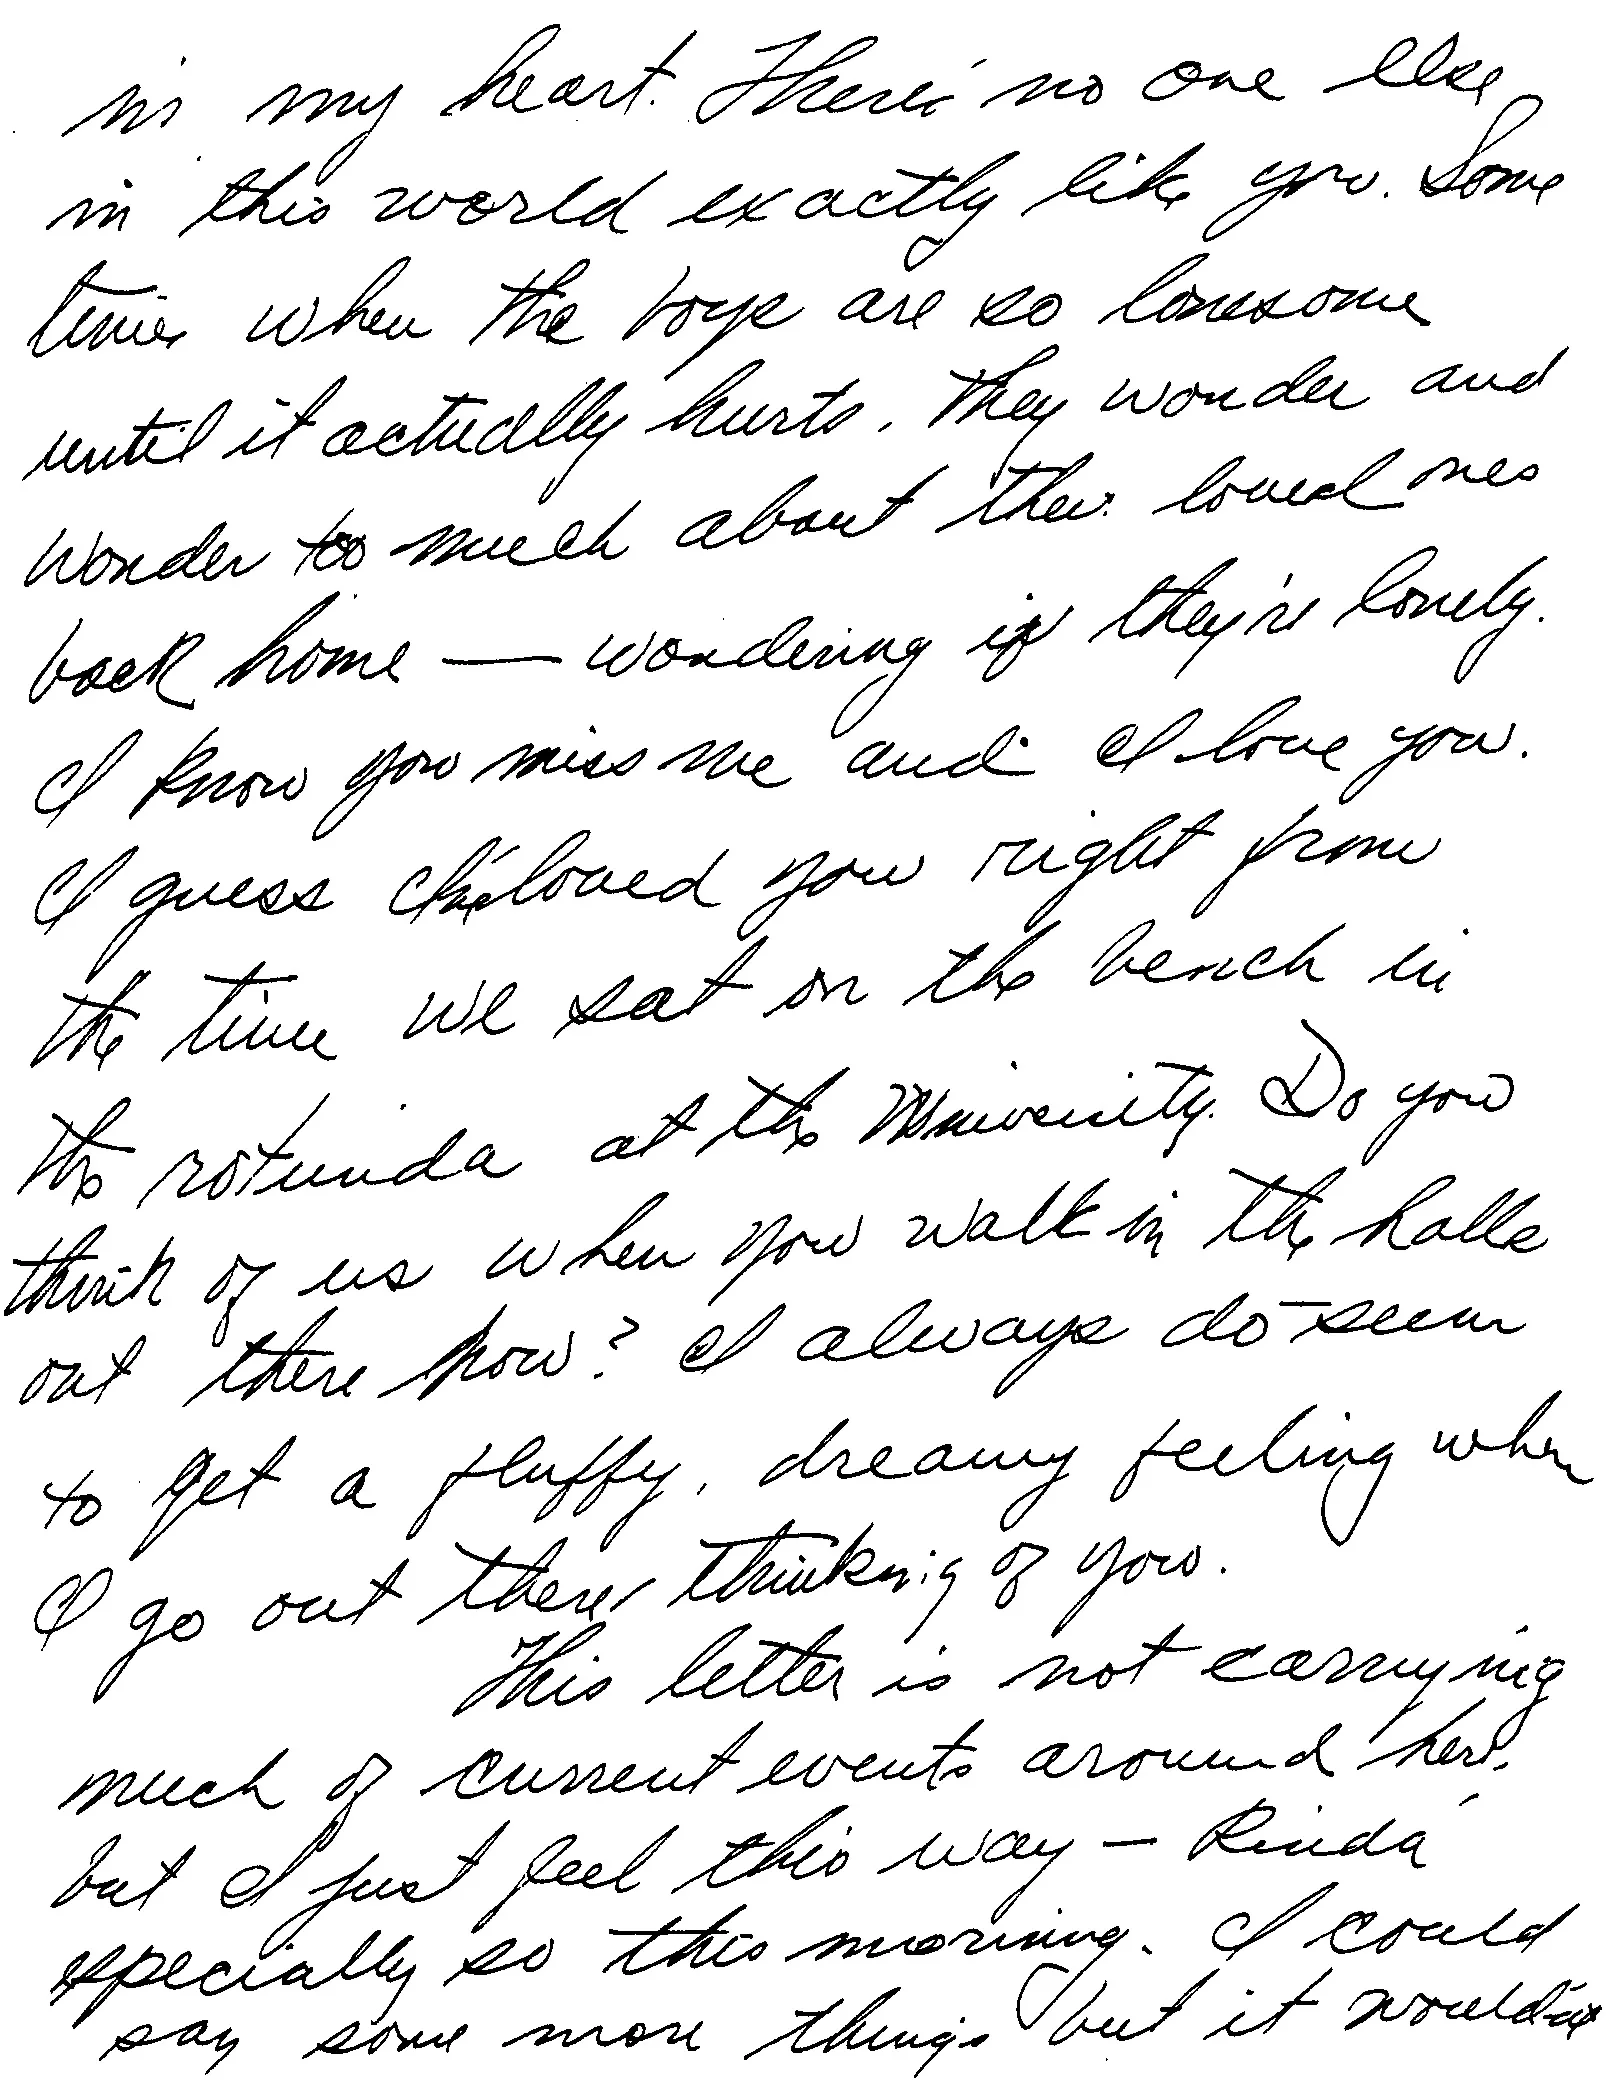 in my heart. There's no one else
in this world exactly like you. Some
times when the boys are so lonesome
until it actually hurts. They wonder and
wonder too much about their loved ones
back home — wondering if they're lonely.
I know you miss me and I love you.
I guess I've loved you right from
the time we sat on the bench in
the rotunda at the University. Do you
think of us when you walk in the halls
out there now? I always do seem
to get a fluffy, dreamy feeling when
I go out there, thinking of you.
This letter is not carrying
much of current events around here,
but I just feel this way — Kinda'
especially so this morning. I could
say some more things but it wouldn't